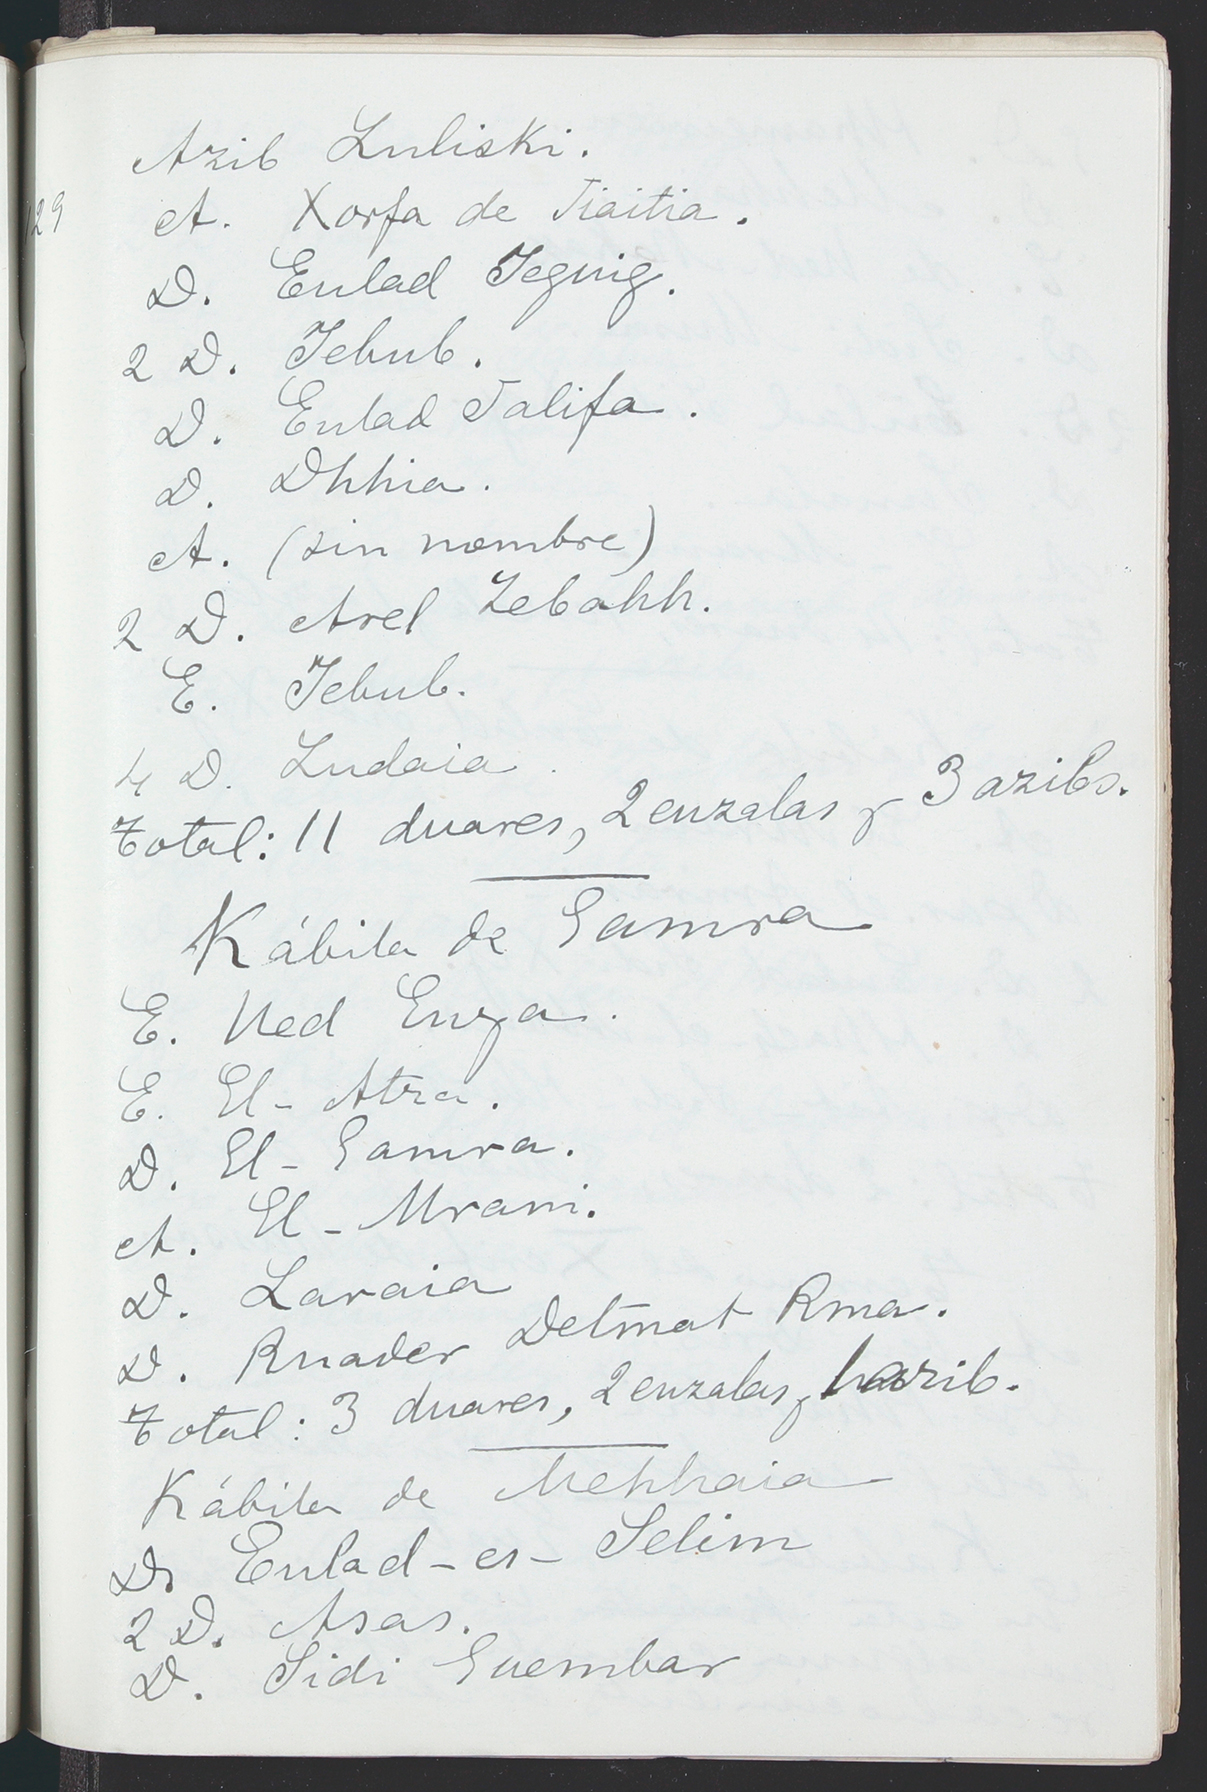 Azib Luliski.
129
A. Xorfa de Tiaitia.
D. Eulad Teguig.
2 D. Jebub.
D. Eulad Talifa.
D. Dhhia.
A. (sin nombre)
2 D. Arel Zebahh.
E. Jebub.
4 D. Ludaia.
Total: 11 duares, 2 enzalas y 3 azibs.
Kábila de Gamra
E. Ued Enza.
E. El-Atra.
D. El-Gamra.
A. El-Mrani.
D. Laraia
D. Ruader Detmat Rma.
Total: 3 duares, 2 enzalas y 1 azib.
Kábila de Mehhaia
D. Eulad-es-Selim
2 D. Asas.
D. Sidi Guembar